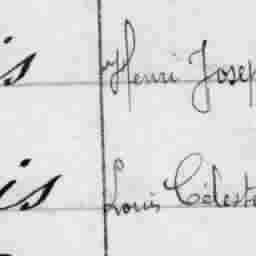 is Henri Josep
is Louis Célest